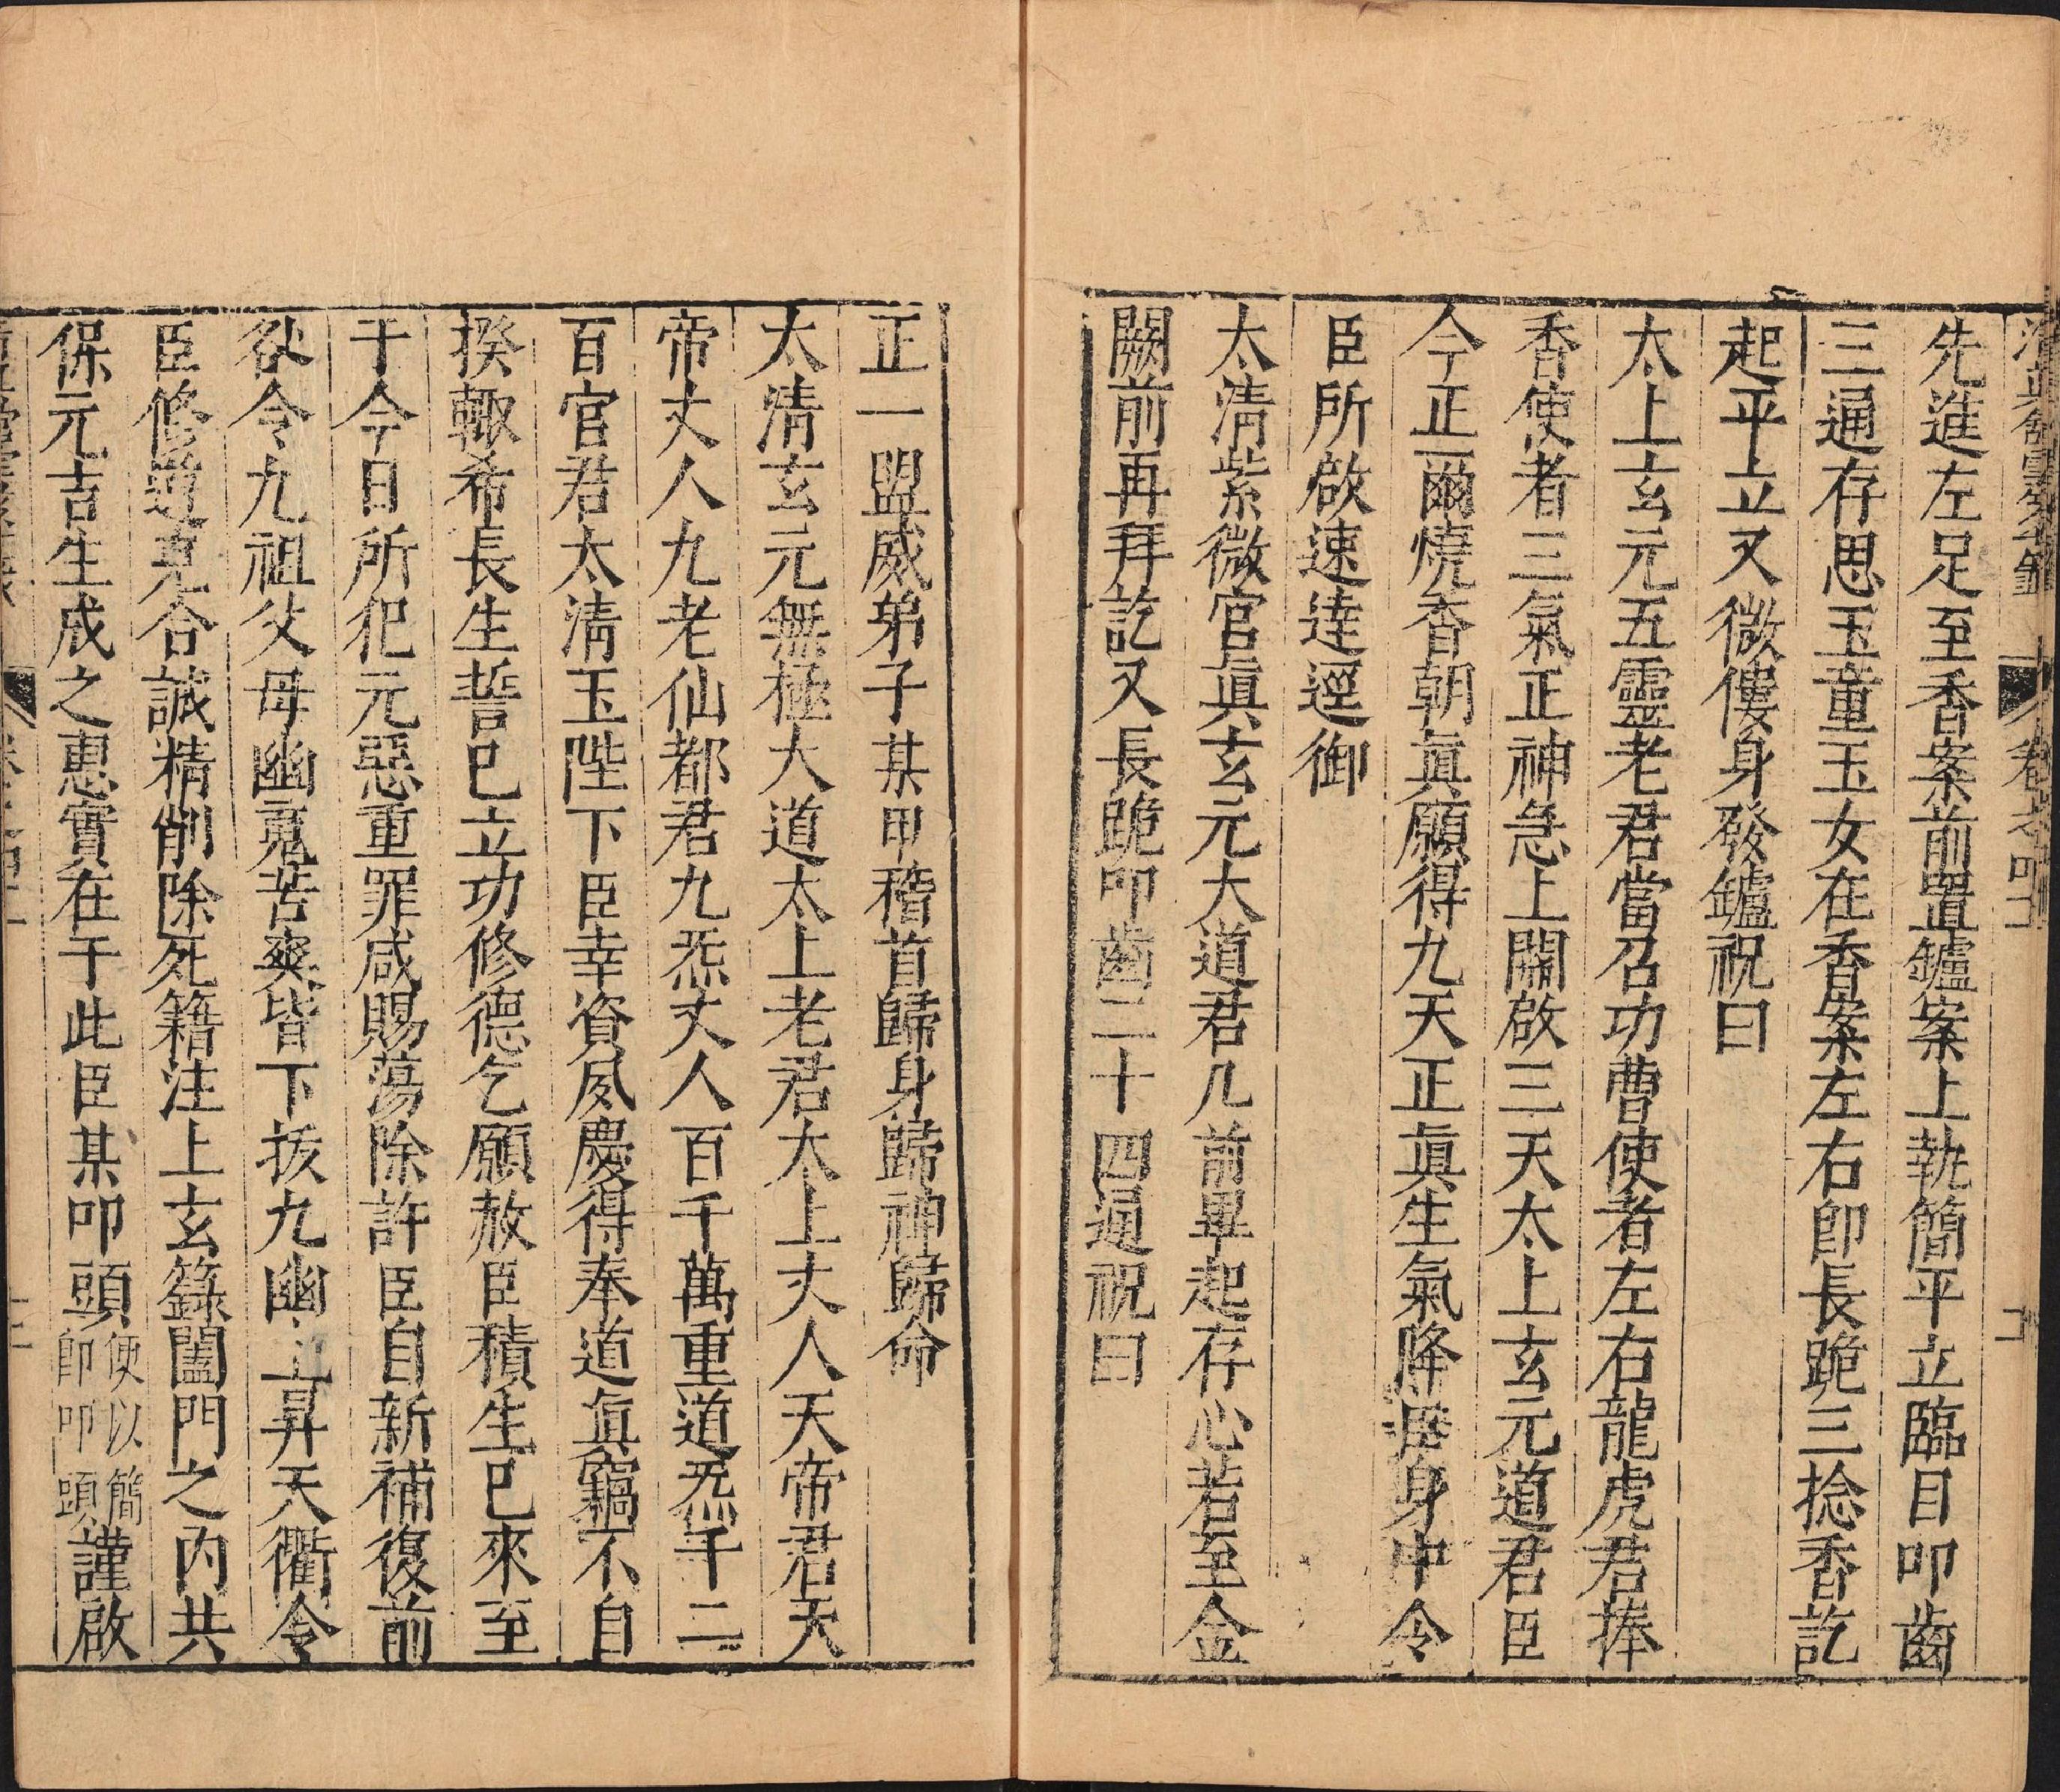 先進左足至香案前置鑪案上執簡平立臨目叩齒
三通存思玉童玉女在香案左右卽長跪三捻香訖
起平立又微僂身發鑪祝曰
太上玄元五靈老君當召功曹使者左右龍虎君捧
香使者三氣正神急上關啟三天太上玄元道君臣
今正爾燒香朝眞願得九天正眞生氣降居身中令
臣所啟速達逕御
太淸紫微宮眞玄元大道君几前畢起存心若至金
闕前再拜訖又長跪叩齒二十四通祝曰
正一盟威弟子某甲稽首歸身歸神歸命
太淸玄元無極大道太上老君太上丈人天帝君天
帝丈人九老仙都君九炁丈人百千萬重道炁千二
百官君太淸玉陛下臣幸資夙慶得奉道眞竊不自
揆輙希長生誓已立功修德乞願赦臣積生已來至
于今日所犯元惡重罪咸賜蕩除許臣自新補復前
𠎝令九祖父母幽䰟苦爽皆下拔九幽上昇天衢令
臣修道克合誠精削除死籍注上玄籙闔門之內共
保元吉生成之惠實在于此臣某叩頭便以簡卽叩頭謹啟